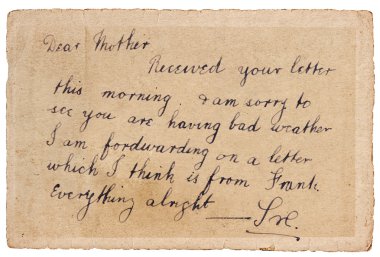 Dear Mother
Received your letter
this morning. I am sorry to
see you are having bad weather
I am fordwarding on a letter
which I think is from Frank.
Everything alright —